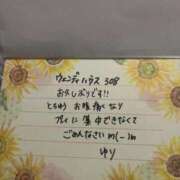 ウェンディハウス 308
お久しぶりです!!
とちゅう お腹痛くなり
プレイに集中できなくて
ごめんなさい m(_ _)m
ゆり